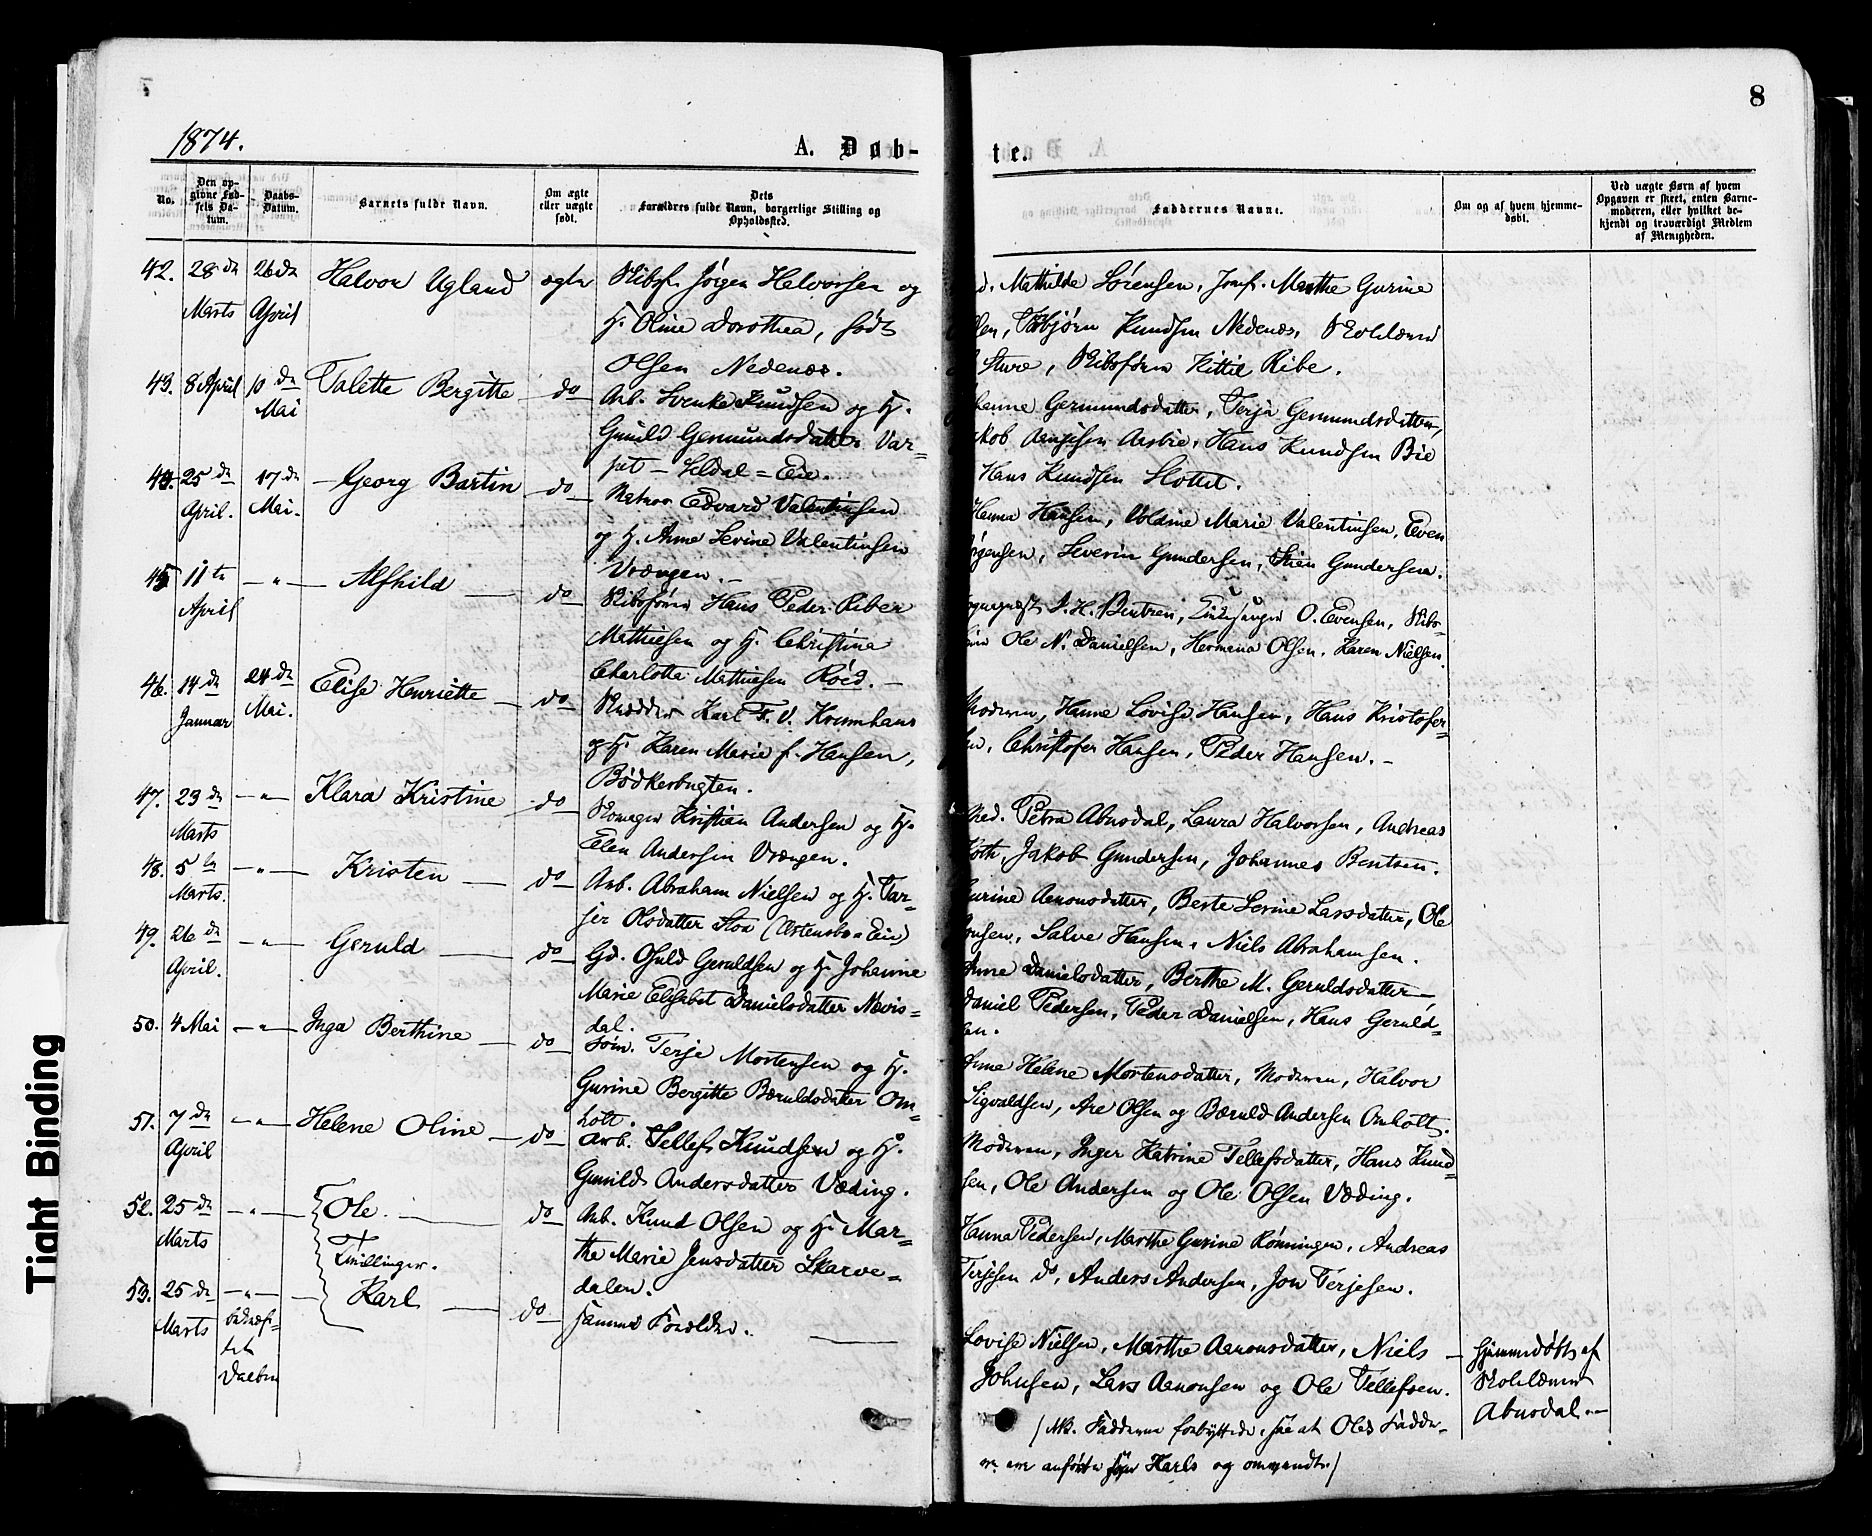 8
1874.
A. Døb-
te.
No.
Den op-
givne Fød-
sels Da-
tum.
Daabs-
Datum.
Barnets fulde Navn.
Om ægte
eller uægte
født.
Dets
Forældres fulde Navn, borgerlige Stilling og
Opholdssted.
Faddernes Navne.
Om og af hvem hjemme-
døbt.
Ved uægte Børn af hvem
Opgaven er skeet, enten Barne-
moderen, eller hvilket be-
kjendt og troværdigt Medlem
af Menigheden.
42. 28de Marts 26de April Halvor Ugland ægte
Skibsf. Jørgen Halvorsen og
H. Oline Dorothea, født
Olsen Nedenæs.
Mathilde Sørensen, Jomf. Marthe Gurine
Knudsen Nedenæs, Skolelærer
Sture, Skibsfører Kittil Ribe.
43. 8 April 10de Mai Talette Bergitte do
Arb. Svenke Knudsen og H.
Gunild Germundsdatter Var-
pet - Seldal = Eie.
Germundsdatter, Terje Germundsdatter,
Hans Knudsen Bie
Hans Knudsen Slottet.
44. 25de April. 17de Mai. Georg Bartin do
Matros Edvard Valentinsen
og H. Anne Sevine Valentinsen
Vrængen.
Hanna Hansen, Voldine Marie Valentinsen, Even
Jørgensen, Severin Gundersen, Stien Gundersen.
45 11te April - " - Alfhild do
Skibsfører Hans Peder Riber
Mathiesen og H. Christine
Charlotte Mathiesen Røed.
Sognepræst J. H. O. Evensen, Skibs-
Ole N. Danielsen, Hermana Olsen, Karen Nielsen.
46. 14de Januar 24de Mai. Elise Henriette do
Skrædder Karl F. V. Krumhaus
og H. Karen Marie f. Hansen,
Bødkerbugten.
Moderen, Hanne Lovise Hansen, Hans Kristofer-
sen, Christofer Hansen, Peder Hansen.
47. 23de Marts - " - Klara Kristine do
Skomager Kristian Andersen og H.
Elen Andersen Vrængen.
Mad. Petra Abusdal, Laura Halvorsen, Andreas
Jakob Gundersen, Johannes Bentsen.
48. 5te Marts. - " - Kristen do
Arb. Abraham Nielsen og H. Tar-
jer Olsdatter Stoa (Østensbo = Eie)
Gurine Aanonsdatter, Berte Serine Larsdatter, Ole
Salve Hansen, Niels Abrahamsen.
49. 26de April. - " - Geruld do
Gd. Osuld Geruldsen og H. Johanne
Marie Elisabet Danielsdatter Nævis-
dal.
Anne Danielsdatter, Berthe M. Geruldsdatter,
Daniel Pedersen, Peder Danielsen, Hans Geruld-
sen.
50. 4 Mai - " - Inga Berthine do
Søm. Terje Mortensen og H.
Gurine Bergitte Bæruldsdatter Om-
holt.
Anne Helene Mortensdatter, Moderen, Halvor
Sigvaldsen, Are Olsen og Bæruld Andersen Omholt.
51. 7de April - " - Helene Oline do
Arb. Tellef Knudsen og H.
Gunild Andersdatter Væding.
Moderen, Inger Katrine Tellefsdatter, Hans Knud-
sen, Ole Andersen og Ole Olsen Væding.
52. 25de Marts - " - Ole do
Tvillinger.
Arb. Knud Olsen og H. Mar-
the Marie Jensdatter Skarve-
dalen.
Hanna Pedersen, Marthe Gurine Rønningen, Andreas
Terjesen do, Anders Andersen, Jon Terjesen.
53. 25de Marts - " - bekræf-
tet
Daaben
Karl do
samme Forældre.
Lovise Nielsen, Marthe Aanonsdatter, Niels
Johnsen, Lars Aanonsen og Ole Tellefsen.
(NB. Fadderne forbyttede, saa at Oles Faddere
ere anførte for Karls og omvendt.)
Hjemmedøbt af
Skolelærer
Abusdal.
Tight Binding